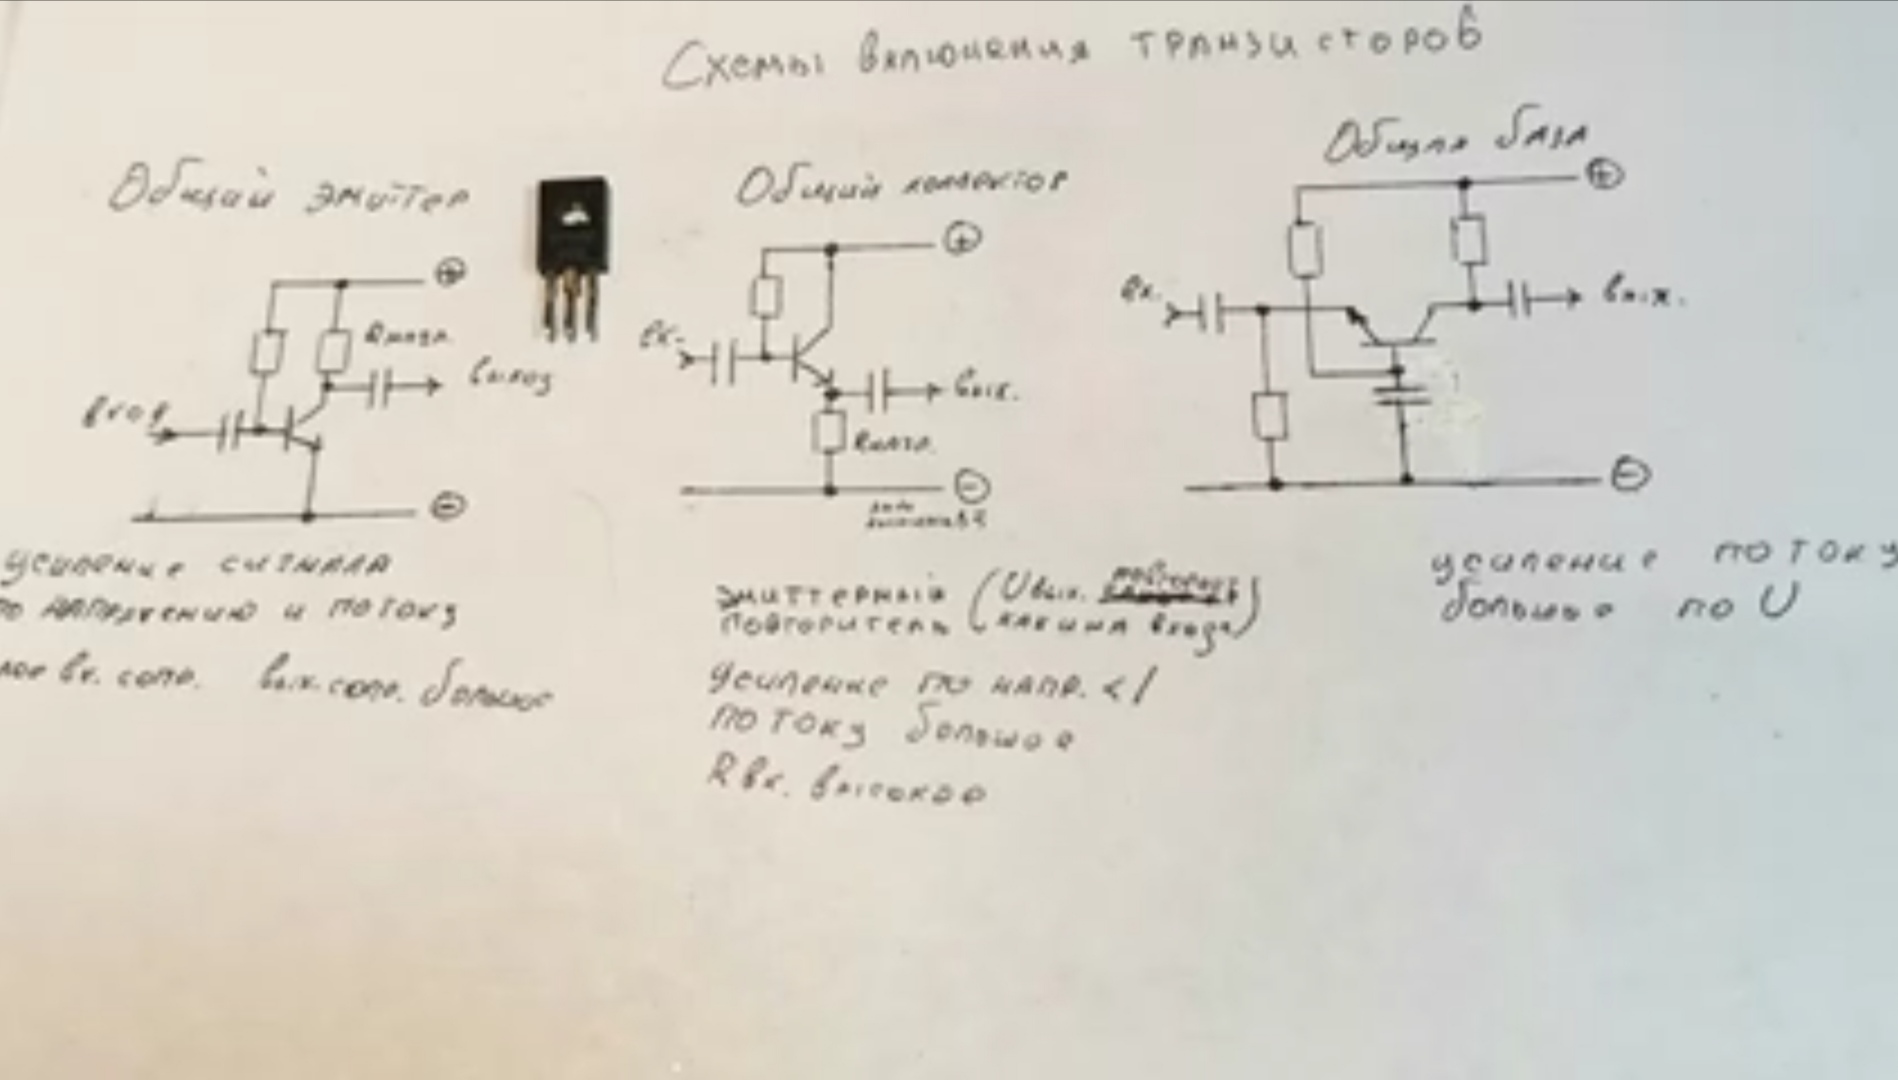 Схемы включения транзисторов
Общий эмиттер
вход
Rнагр.
выход
усиление сигнала
по напряжению и по току
вх. сопр. вых. сопр. большое
Общий коллектор
вх.
вых.
Rнагр.
эмиттерный
повторитель
(Uвых.
как и на входе)
усиление по напр. <1
по току большое
Rвх. высокое
Общая база
вх.
вых.
усиление по току
большое по U